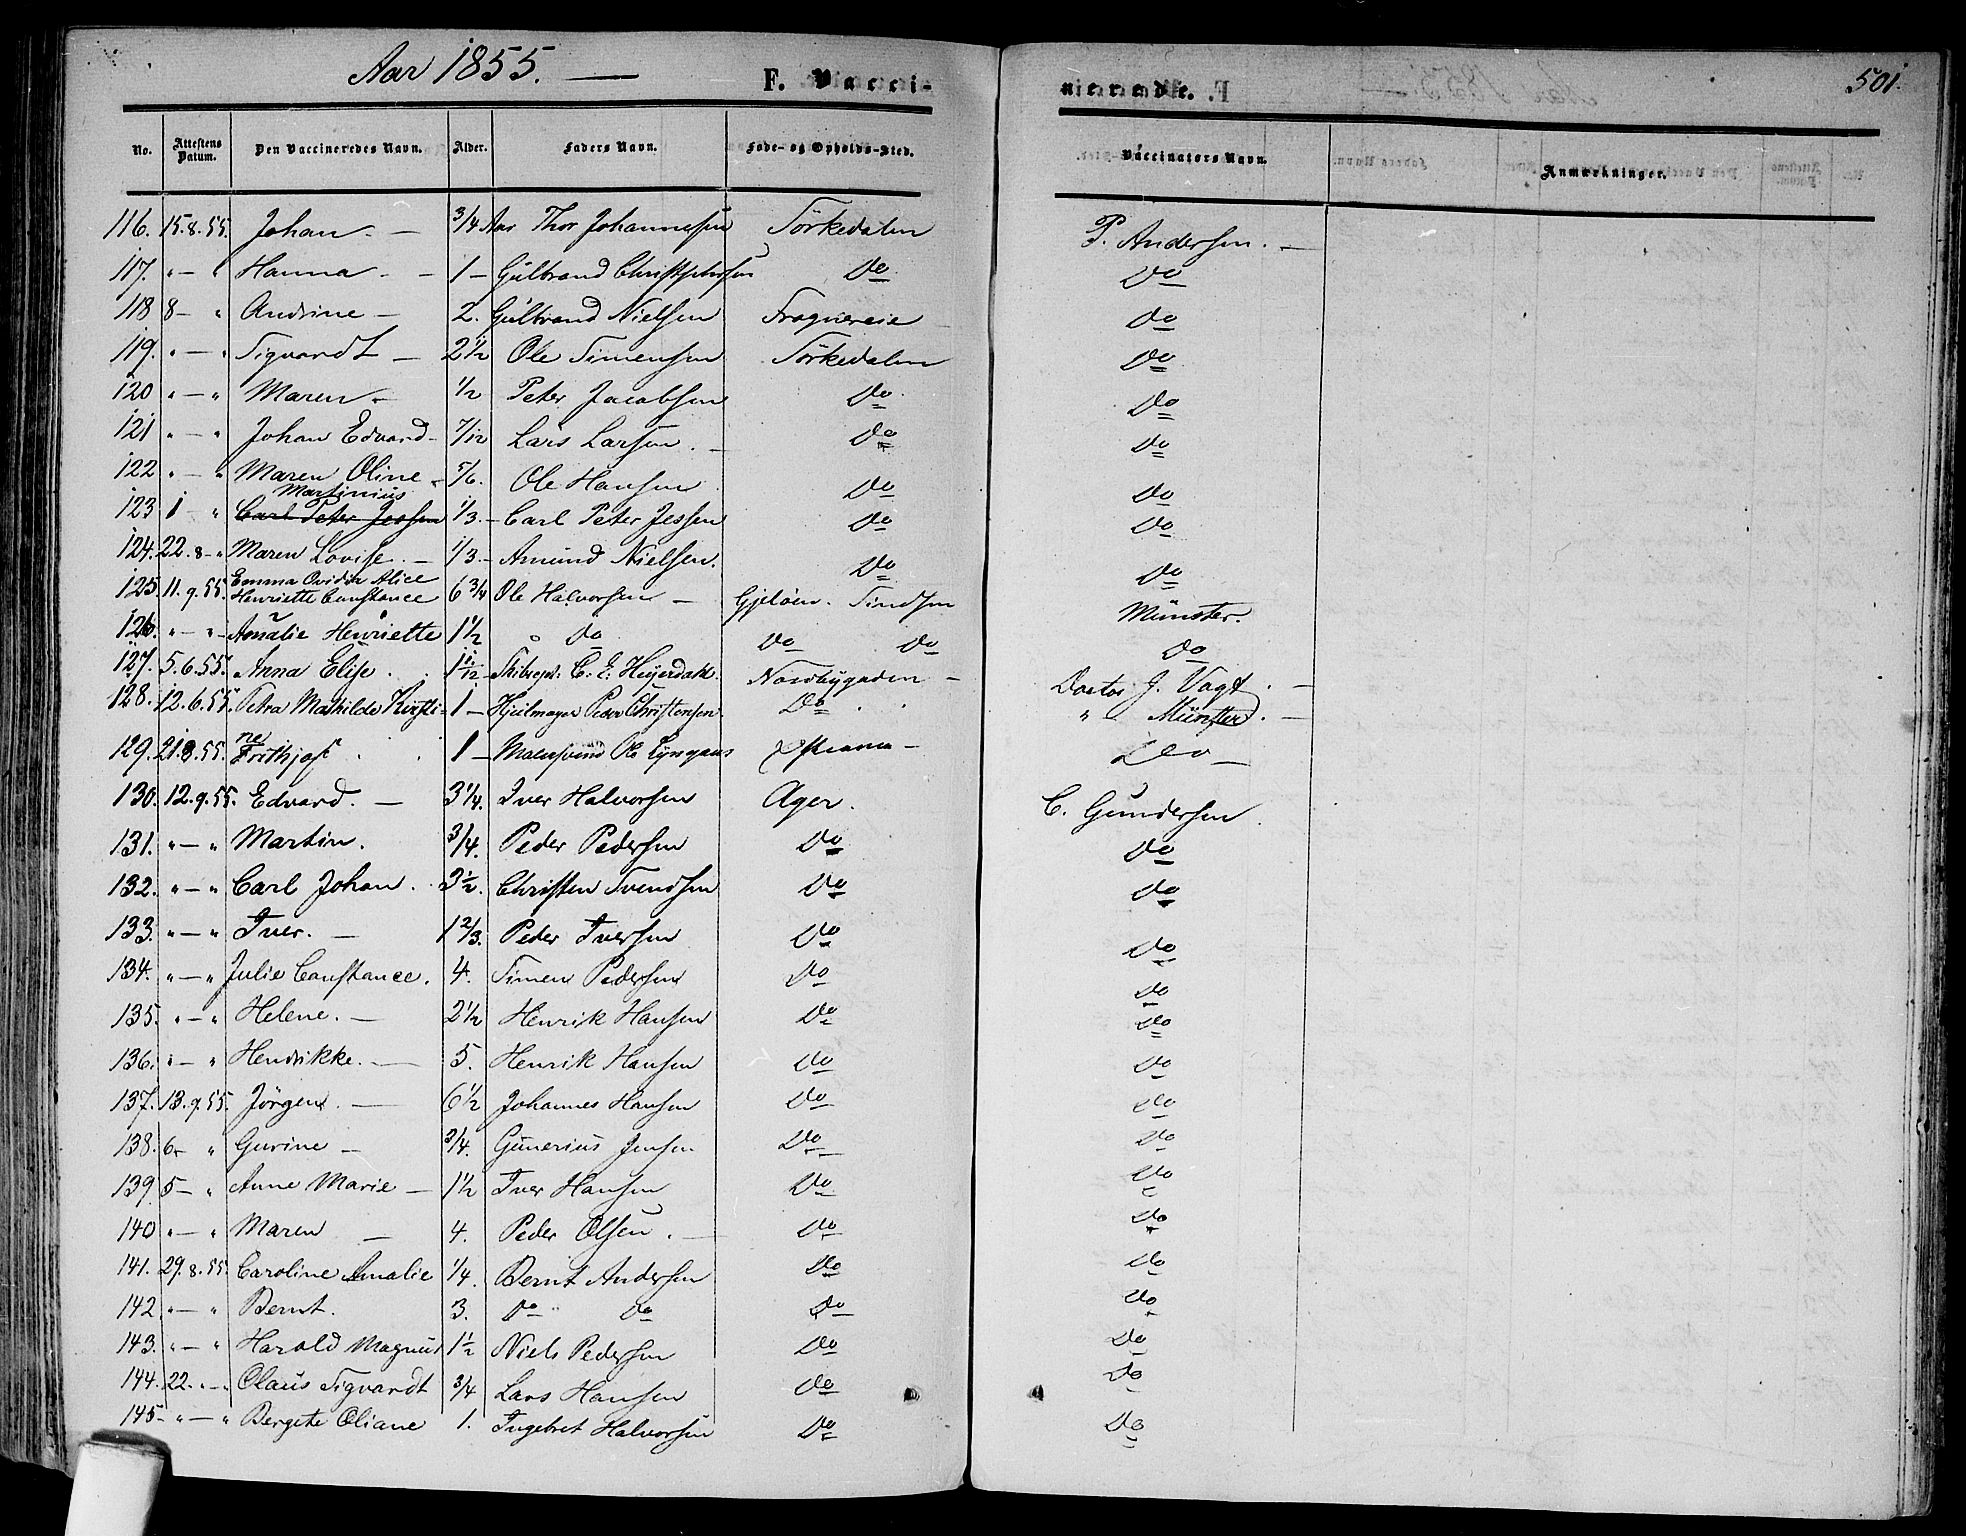 Aar 1855. — F. Vacci- nerede. 501.
No. Attestens Datum. Den Vaccineredes Navn. Alder. Faders Navn. Føde- og Opholds-Sted. Vaccinators Navn. Anmærkninger.
116. 15.8.55. Johan. — 3/4 Aar Thor Johannesen Sörkedalen P. Andersen. —
117. " — " Hanna. — 1 — Gulbrand Christophersen Do Do
118 8 — " Andrine — 2. Gulbrand Nielsen Frognereie Do
119. " — " Sigvardt — 2 1/2 Ole Simensen Sörkedalen Do
120 " — " Maren — 1/2 Peter Jacobsen Do Do
121 " — " Johan Edvard — 7/12 Lars Larsen. — Do Do
122 " — " Maren Oline — 5/6. Ole Hansen Do Do
Martinius
123 1 " Carl Peter Jessen 1/3. — Carl Peter Jessen Do Do
124. 22.8 — " Maren Lovise. — 1/3. — Amund Nielsen. Do Do
Emma Ovidia Alice
125. 11.9.55. Henriette Constance 6 3/4 Ole Halvorsen — Gjelöen. Münster.
126. " — " — Amalie Henriette 1 1/2 " Do Do Do Do
127. 5.6.55. Anna Elise. 1 11/12 Skibscpt. C. E. Heyerdahl. Nordbygaden — Doctor J. Vogt. —
128. 12.6.55. Petra Mathilde Kirsti- 1 — Hjulmager Peder Christensen. Do " Münster. —
ne
129. 21.8.55. Frithjof 1 — Malersvend Ole Lyngaas Do —
130. 12.9.55. Edvard. — 3 1/4. Iver Halvorsen Ager. C. Gundersen.
131. " — " Martin. 3/4. Peder Pedersen Do Do
132. " — " Carl Johan. 3 1/2. Christen Svendsen Do Do
133. " — " Iver. — 1 2/3. Peder Iversen Do Do
134. " — " Julie Constance. 4. Simen Pedersen Do Do
135. " — " Helene. — 2 1/2 Henrik Hansen Do Do
136. " — " Hendrikke. — 5. Henrik Hansen Do Do
137. 13.9.55. Jörgen. — 6 1/2 Johannes Hansen Do Do
138. 6 — " Gurine — 3/4. Gunerius Jensen Do Do
139 5 — " Anne Marie — 1 1/2 Iver Hansen Do Do
140 " — " Maren — 4. Peder Olsen. — Do Do
141. 29.8.55. Caroline Amalie 1/4. Bernt Andersen Do Do
142 " — " Bernt. 3. Do " Do Do Do
143. " — " Harald Magnus 1 1/2 Niels Pedersen Do Do
144. 22. " — " Olaus Sigvardt 3/4 Lars Hansen Do Do
145 — " — " Bergete Oliane 1. Ingebret Halvorsen Do Do